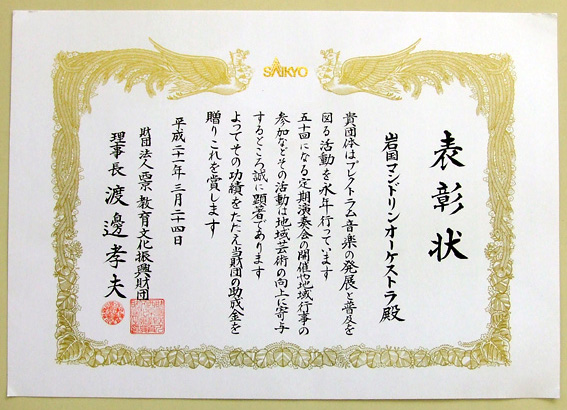 SAIKYO
表彰状
岩国マンドリンオーケストラ殿
貴団体はプレクトラム音楽の発展と普及を
図る活動を永年行っています
五十回になる定期演奏会の開催や地域行事の
参加などその活動は地域芸術の向上に寄与
するところ誠に顕著であります
よってその功績をたたえ当財団の助成金を
贈りこれを賞します
平成二十一年三月二十四日
財団法人西京教育文化振興財団
理事長渡邊孝夫